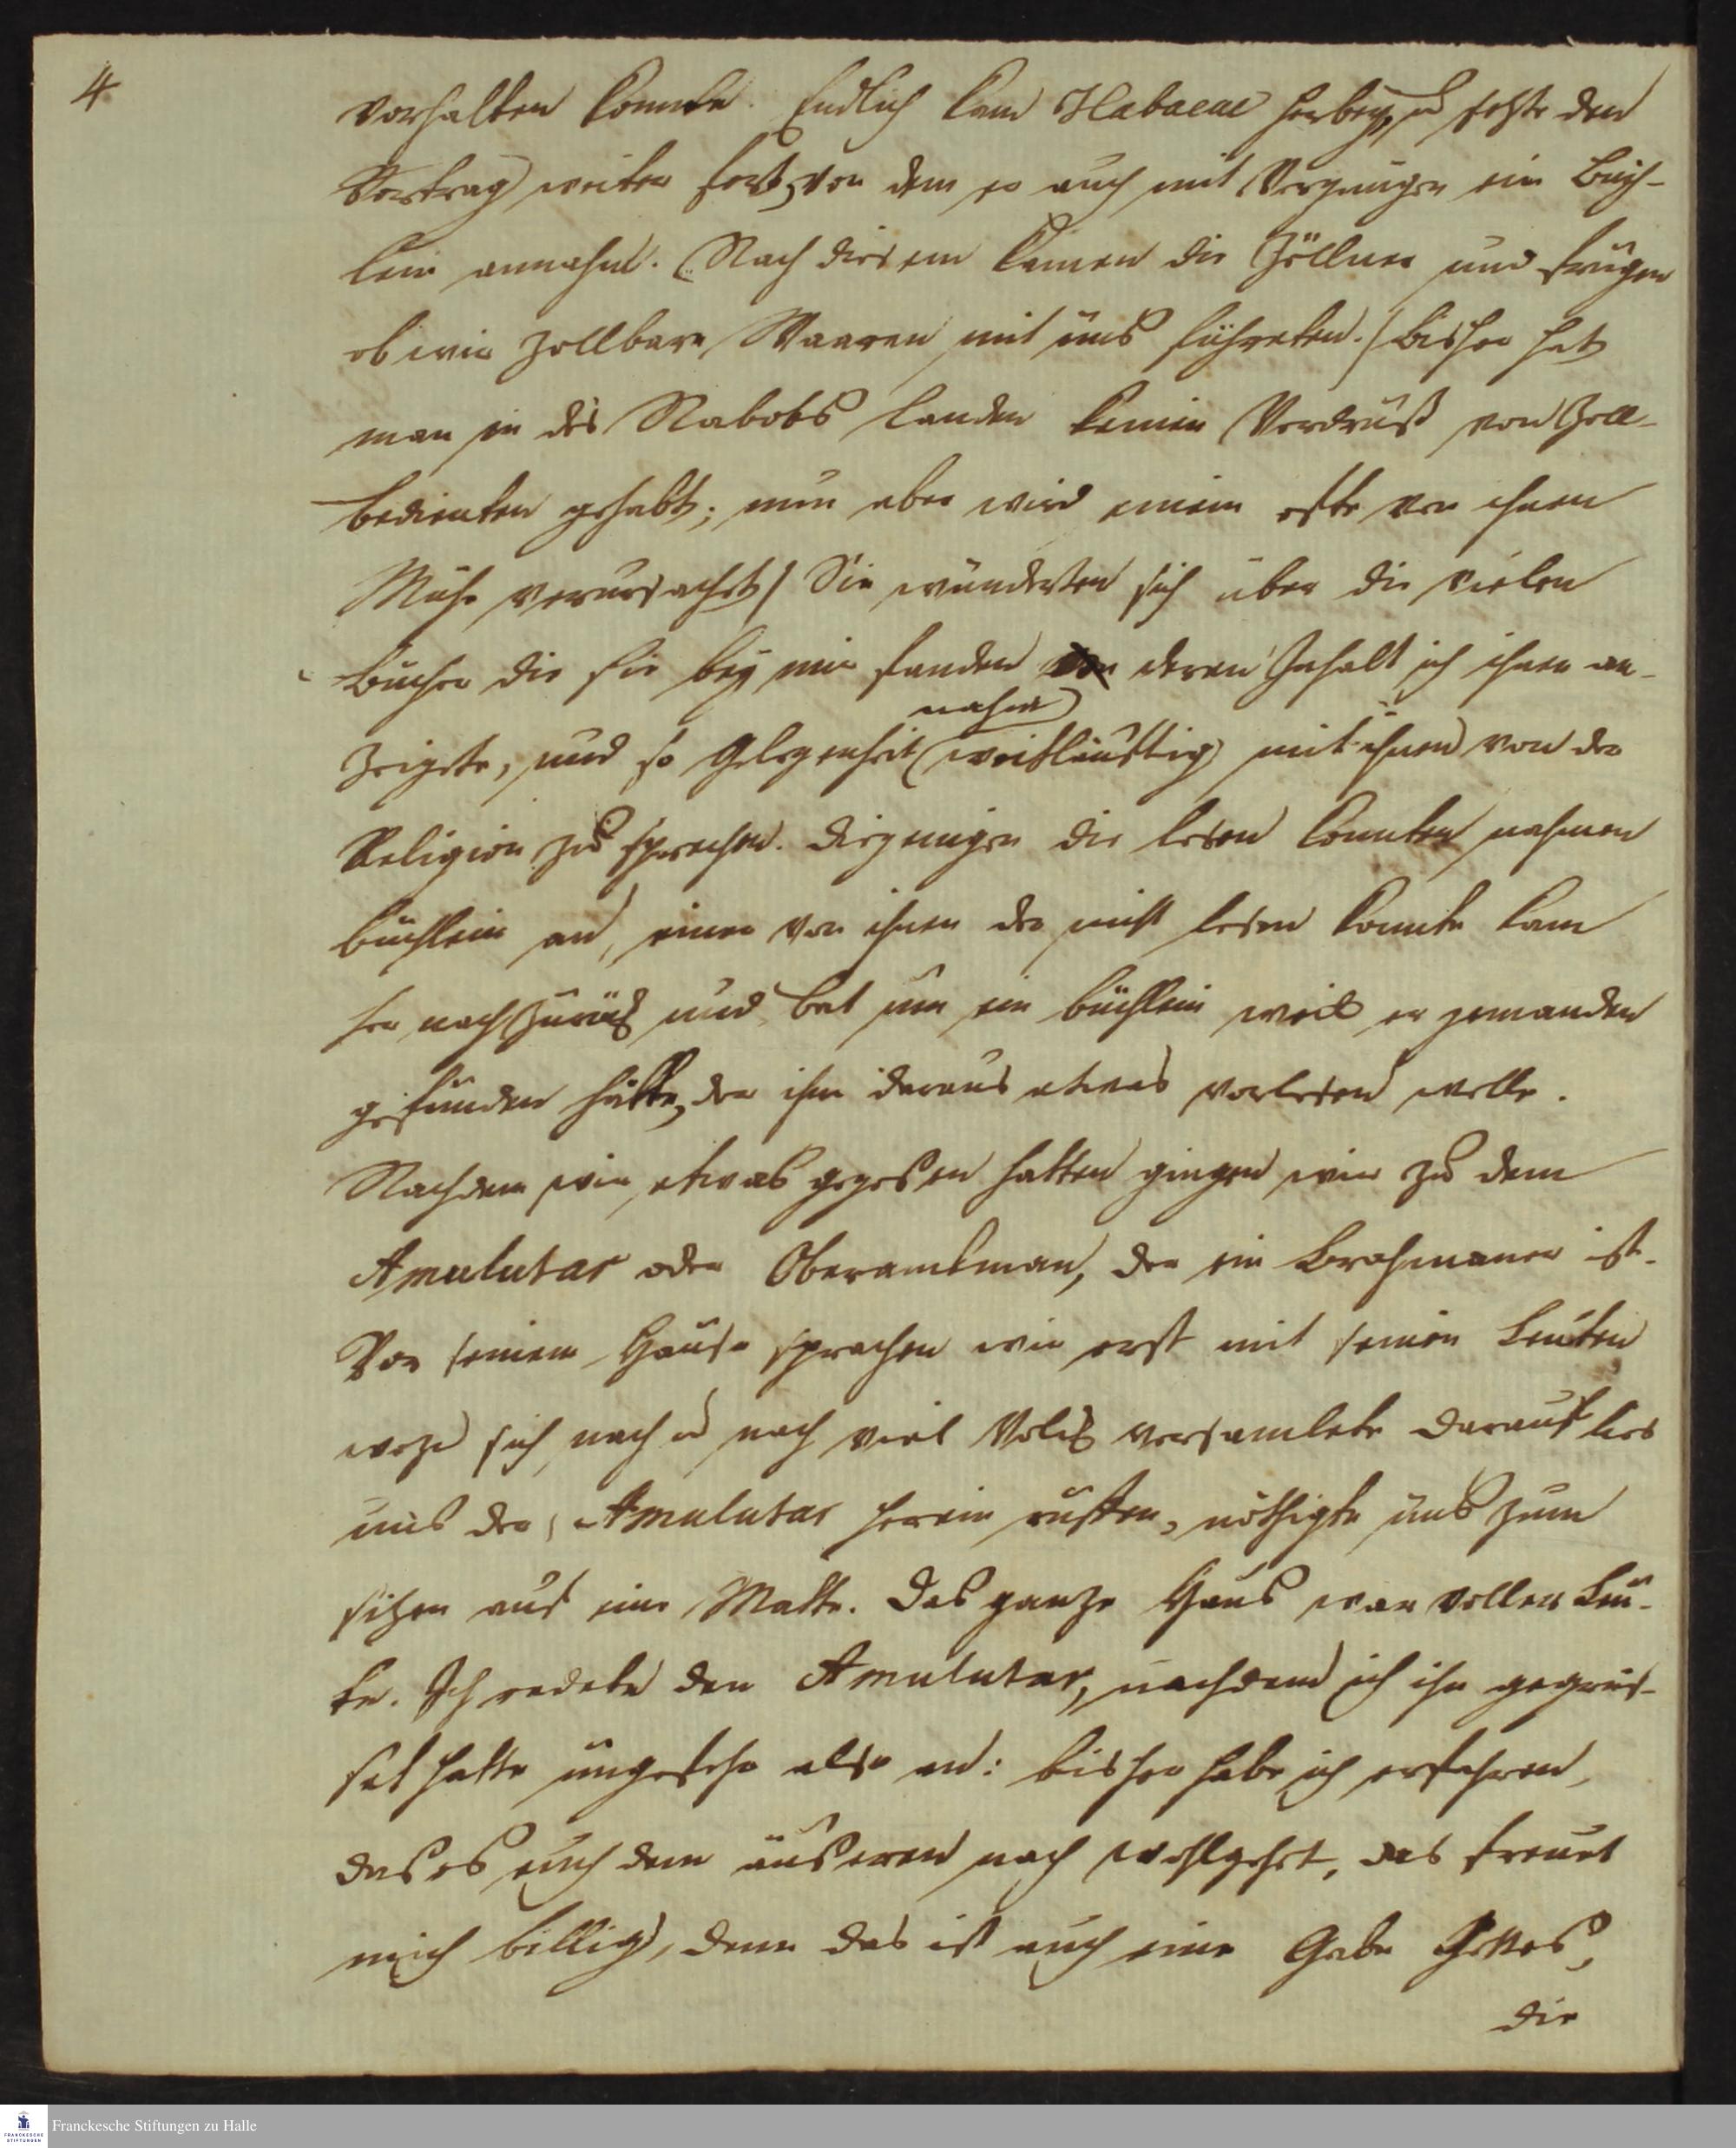 4
vorhalten konnte. Endlich kam Habacuc herbey, u setzte den
Vortrag weiter fort, von dem er auch mit Vergnügen ein Büch-
lein annahm. (Nach diesem kamen die Zöllner und frügen
ob wir zollbare Waaren mit uns führeten./ Bisher hat
man in des Nabobs Landen keinen Verdruß von Zoll-
bedienten gehabt; nun aber wird einem offte von ihnen
Mühe verursacht/ Sie wunderten sich über die vielen
Bücher die sie bey mir fanden deren Inhalt ich ihnen an-
nahm
zeigte, und so Gelegenheit (weitläuftig) mit ihnen von der
Religion zu sprechen. Diejenigen die lesen konnten nahmen
büchlein an, einer von ihnen der nicht lesen konnte kam
her nach zurück und bat um ein büchlein weil er jemanden
gefunden hätte, der ihm daraus etwas vorlesen wolle.
Nachdem wir etwas gegessen hatten gingen wir zu dem
Amulutar oder Oberamtman, der ein Brahmaner ist.
Vor seinem Hause sprachen wir erst mit seinen Leuten
wozu sich nach u nach viel Volck versamlete darauf lies
uns der Amulutar herein ruffen, nöthigte uns zum
sitzen auf eine Matte. Das ganze Haus war voller Leu-
te. Ich redete den Amulutar, nachdem ich ihn gegrüs-
set hatte ungefehr also an: bisher habe ich erfahren,
das es euch dem äusseren nach wohlgehet, das freuet
mich billig, denn das ist auch eine Gabe Gottes,
die
Franckesche Stiftungen zu Halle
FRANCKESCHE
STIFTUNGEN